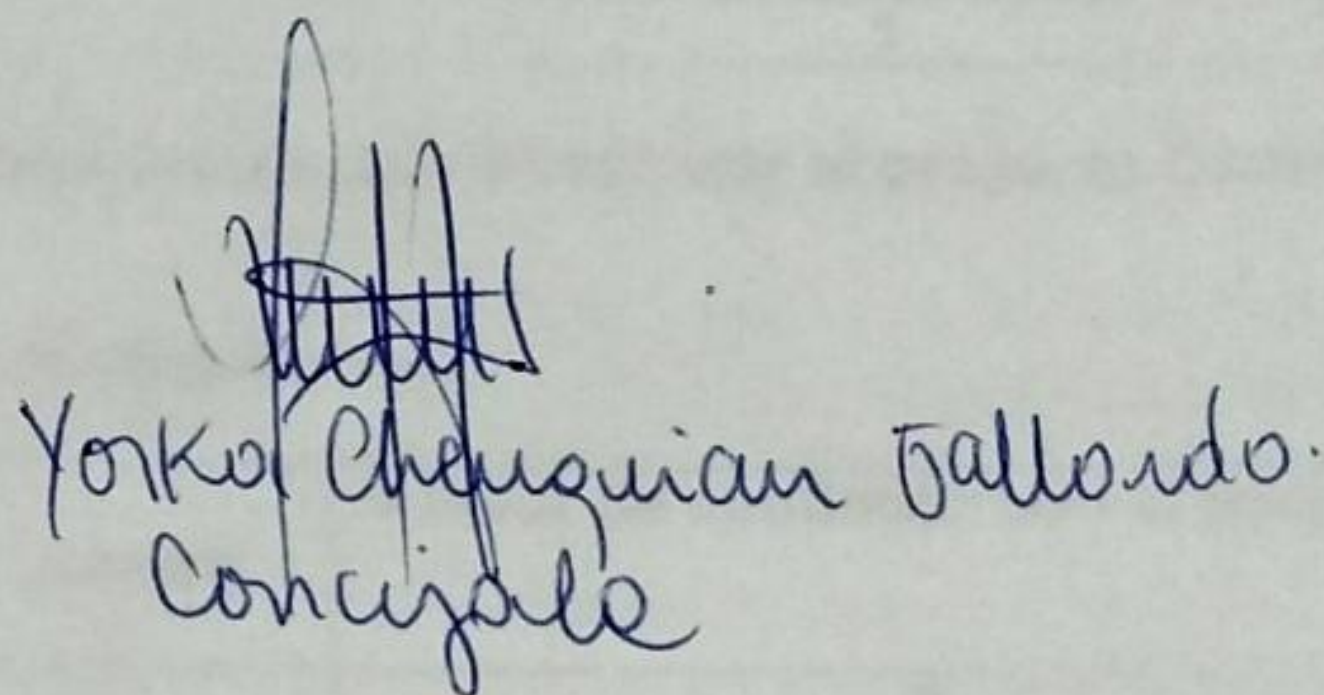 Yorka Chenquian Gallardo.
Concejala